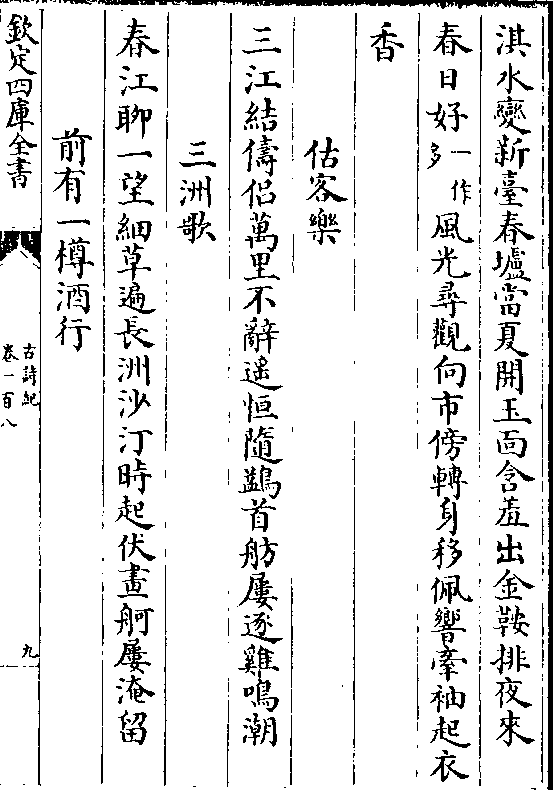 淇水變新臺春壚當夏開玉面含羞出金鞍排夜來
春日好一作多風光尋觀向市傍轉身移佩響牽袖起衣
香
估客樂
三江結儔侶萬里不辭遥恒隨鷁首舫屢逐雞鳴潮
三洲歌
春江聊一望細草遍長洲沙汀時起伏畫舸屢淹留
前有一樽酒行
欽定四庫全書
古詩紀
卷一百八
九